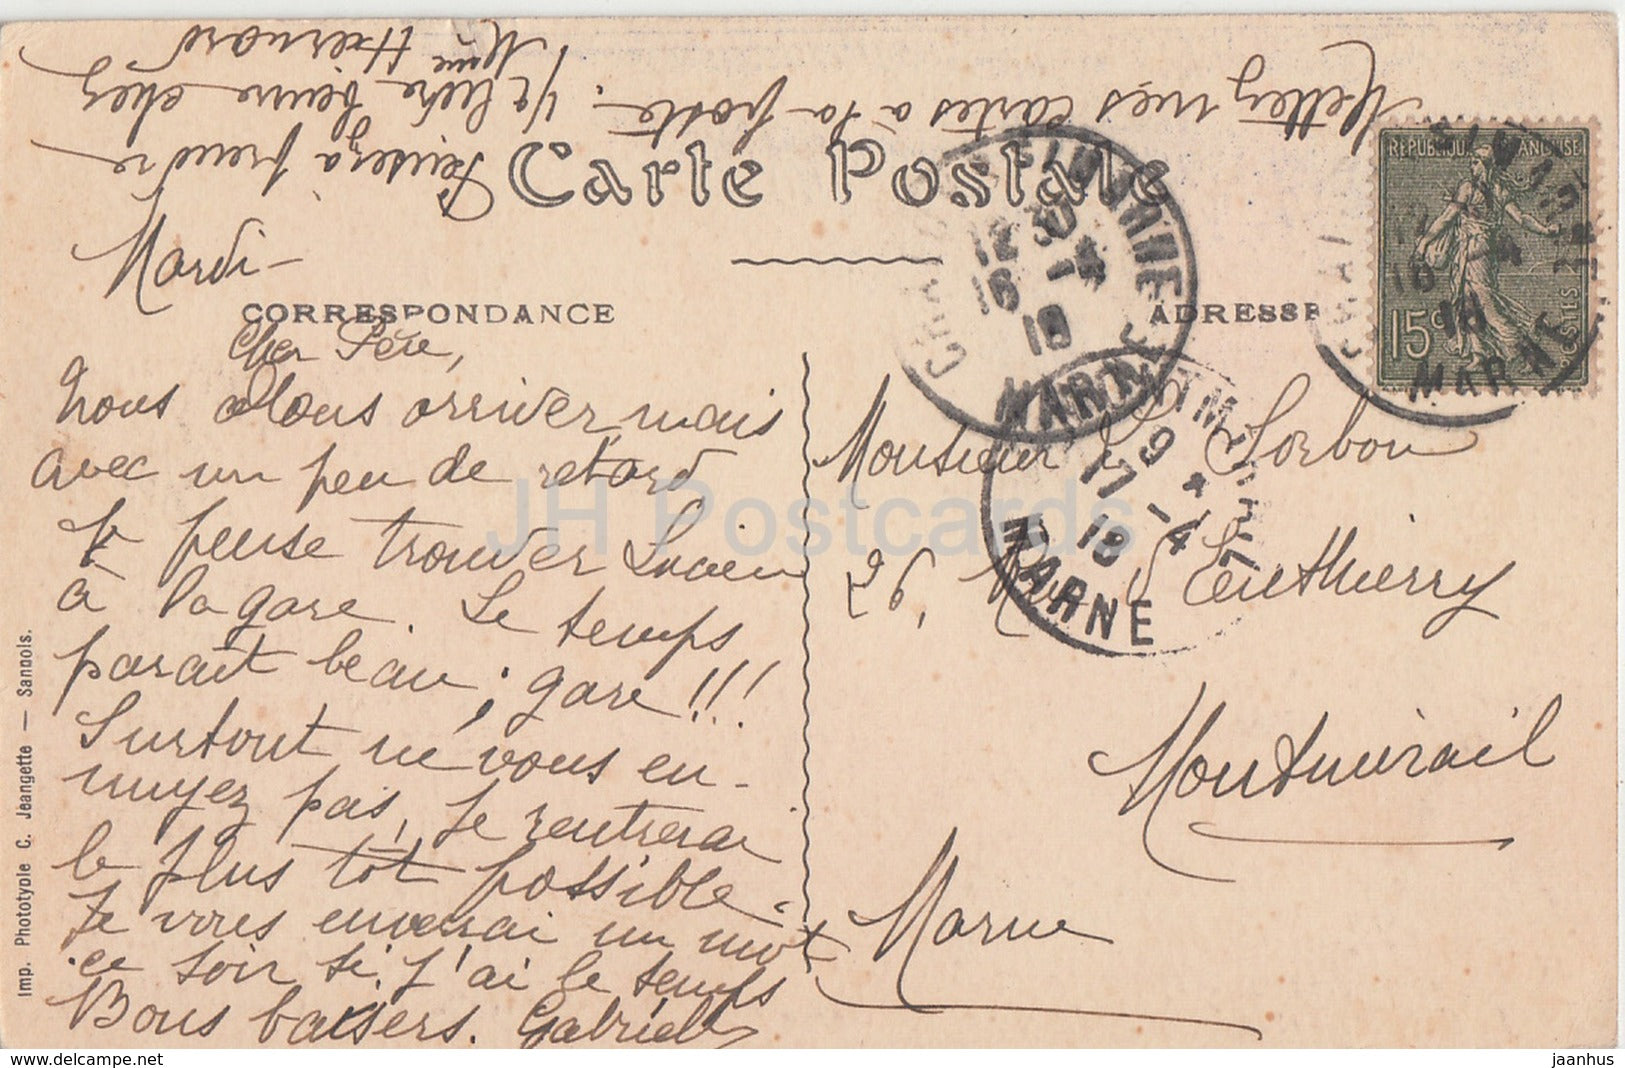 Mettez mes cartes à la poste.
Pensez à prendre
1/2 livre beurre chez
Mme
Carte Postale
Mardi -
CORRESPONDANCE
ADRESSE
RÉPUBLIQUE FRANÇAISE
15c
POSTES
Cher Père,
nous allons arriver mais
avec un peu de retard,
je pense trouver Lucien
à la gare. Le temps
paraît beau ; gare !!!
Surtout ne vous en-
nuyez pas, je rentrerai
le plus tôt possible.
Je vous enverrai un mot
ce soir si j'ai le temps
Bons baisers. Gabrielle
MARNE
12 30
16 -4
18
MARNE
MONTMIRAIL
9
17 -4
18
MARNE
Monsieur L. Sorbon
26, Rue
Montmirail
Marne
Imp. Phototypie C. Jeangette — Sannois.
JH Postcards
jaanhus